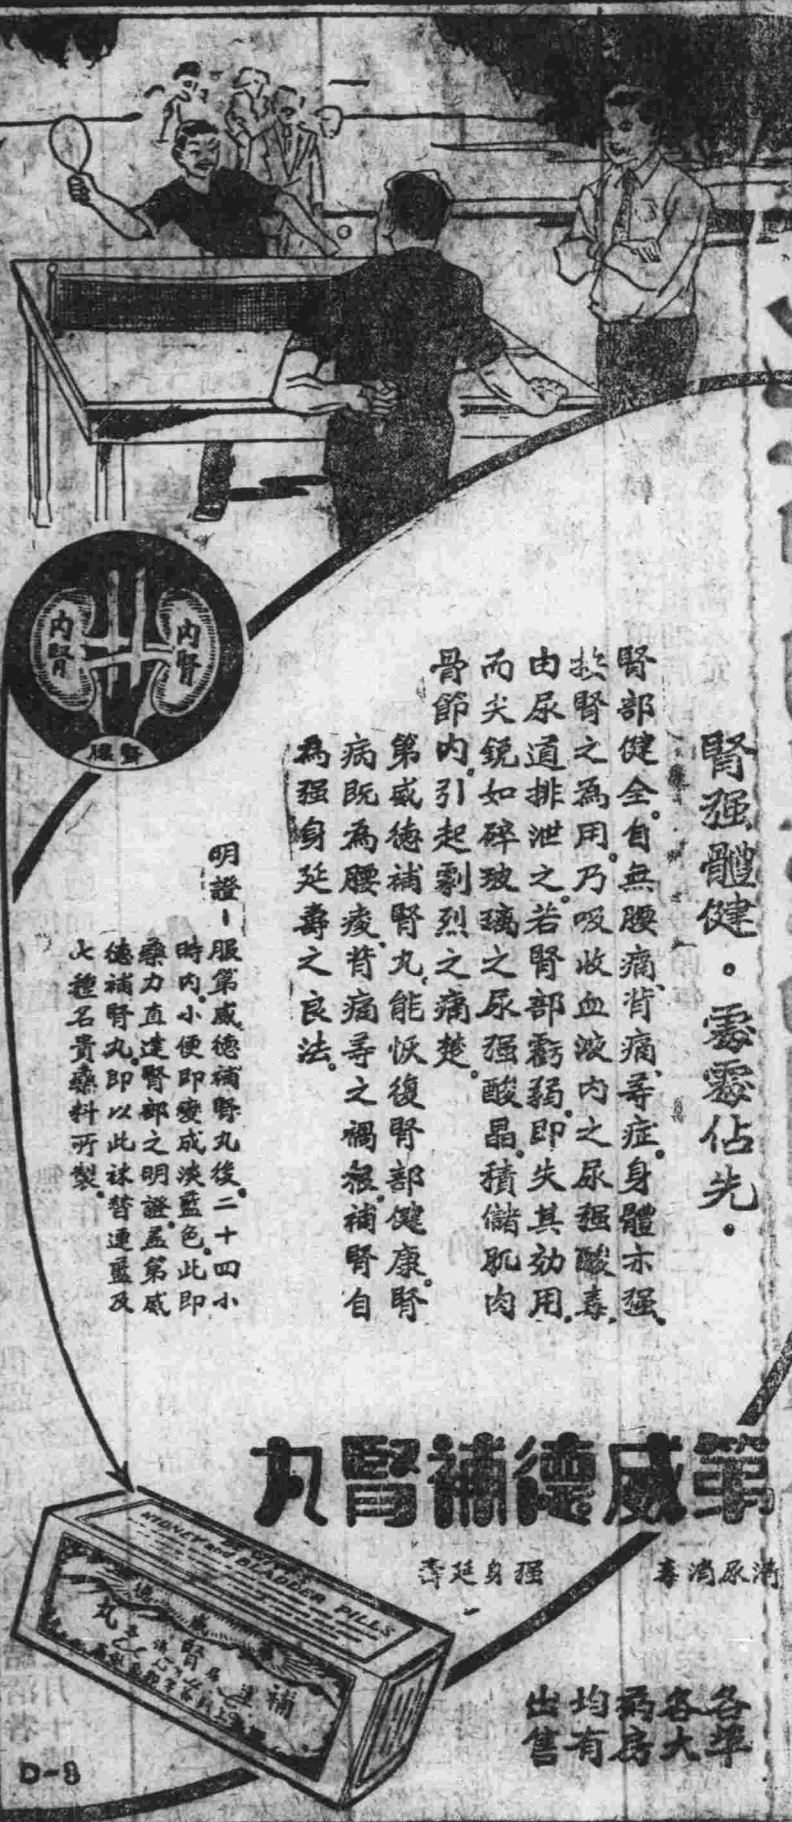 腎强體健。處處佔先。
腎部健全。自無腰痛、背痛、等症。身體亦强。
故腎之為用。乃吸收血液内之尿强酸毒。
由尿道排泄之。若腎部虧弱。即失其効用。
而尖銳如碎玻璃之尿强酸晶。積儲肌肉
骨節内。引起劇烈之痛楚。
第威德補腎丸、能恢復腎部健康。腎
病既為腰痠、背痛等之禍根。補腎自
為强身延壽之良法。
明證–服第威德補腎丸後。二十四小
時内。小便即變成淡藍色。此即
藥力直達腎部之明證。盖第威
德補腎丸。即以此袜替連藍及
七種名貴藥料所製。
内腎
内腎
腎膀
第威德補腎丸
清尿消毒
强身延壽
各埠
各大
葯房
均有
出售
DE WITT'S
KIDNEY and BLADDER PILLS
第威德
補腎丸
D-8